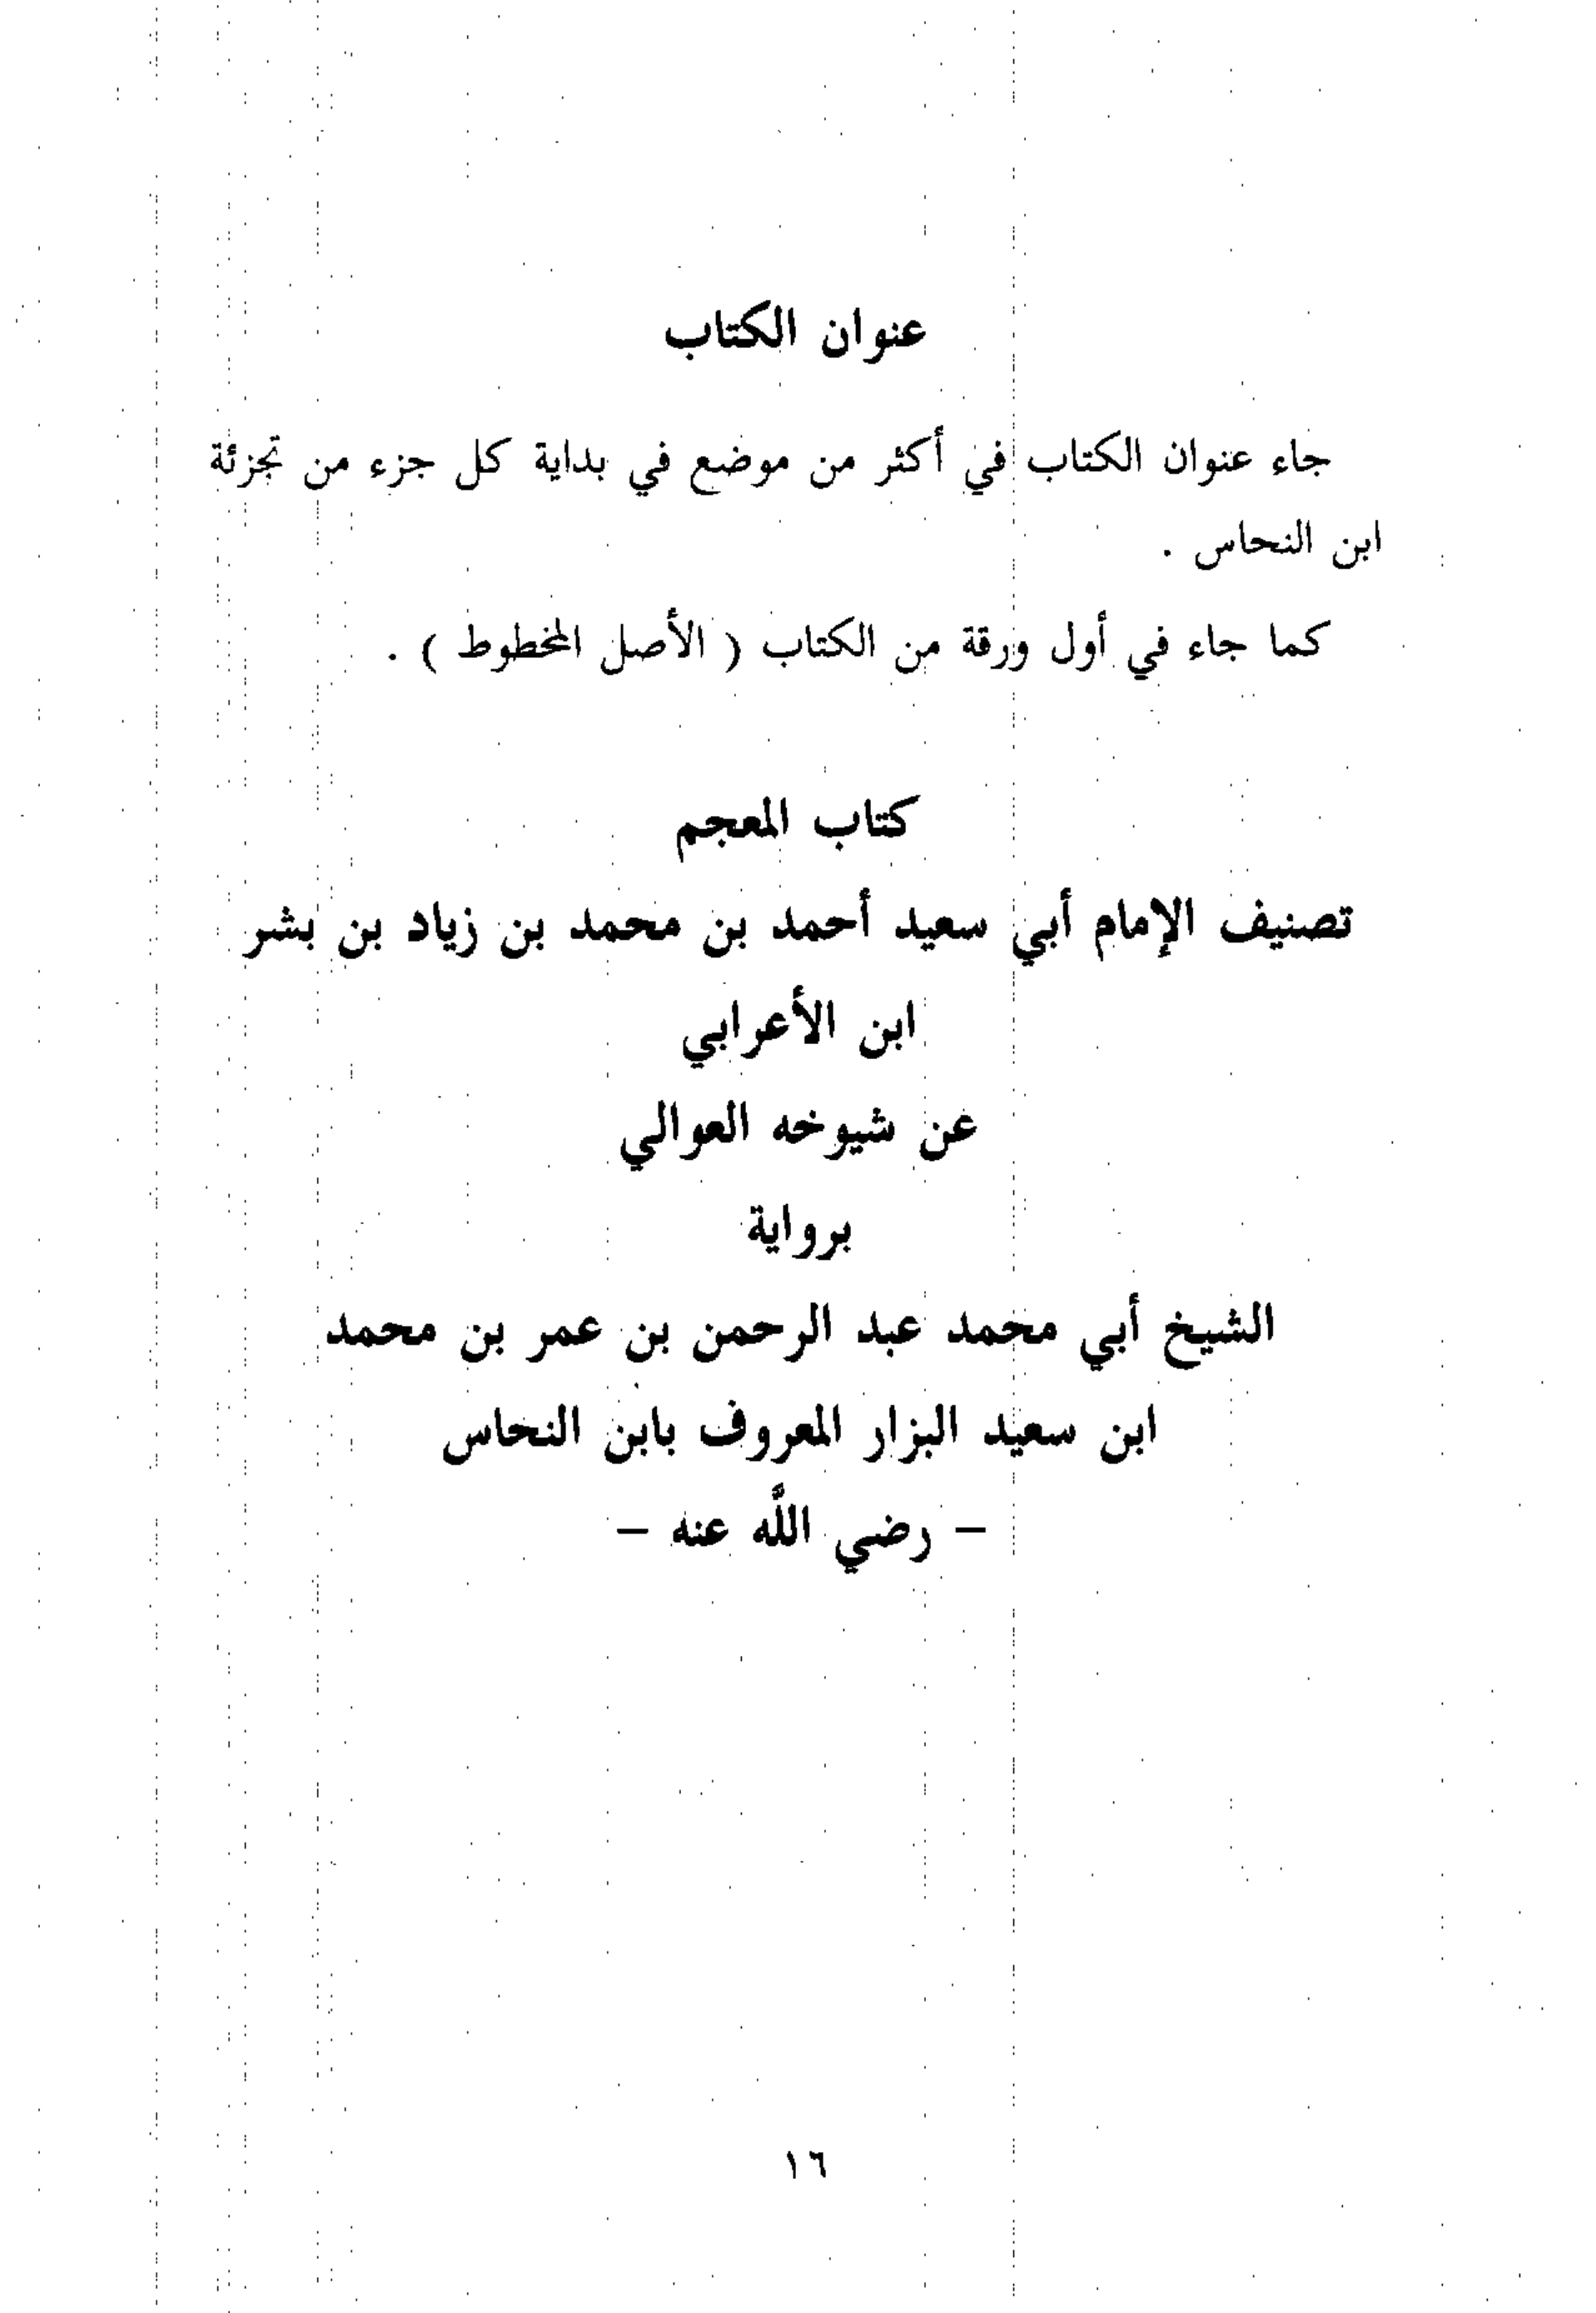 عنوان الكتاب
جاء عنوان الكتاب في أكثر من موضع في بداية كل جزء من تجزئة
ابن النحاس .
كما جاء في أول ورقة من الكتاب ( الأصل المخطوط ) .
كتاب المعجم
تصنيف الإمام أبي سعيد أحمد بن محمد بن زياد بن بشر
ابن الأعرابي
عن شيوخه العوالي
برواية
الشيخ أبي محمد عبد الرحمن بن عمر بن محمد
ابن سعيد البزار المعروف بابن النحاس
– رضي اللَّه عنه –
١٦